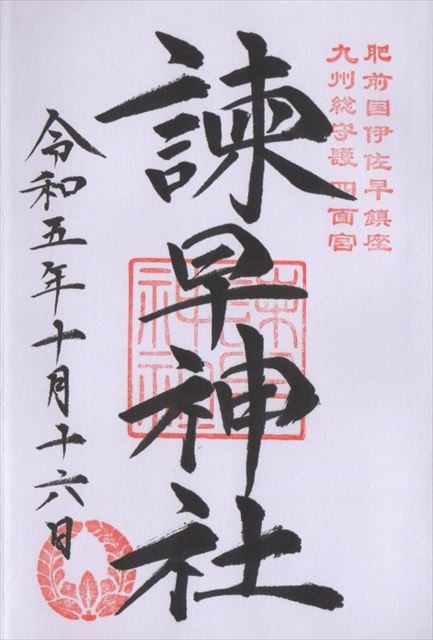 肥前国伊佐早鎮座
九州総守護 四面宮
諫早神社
諫早神社
令和五年十月十六日